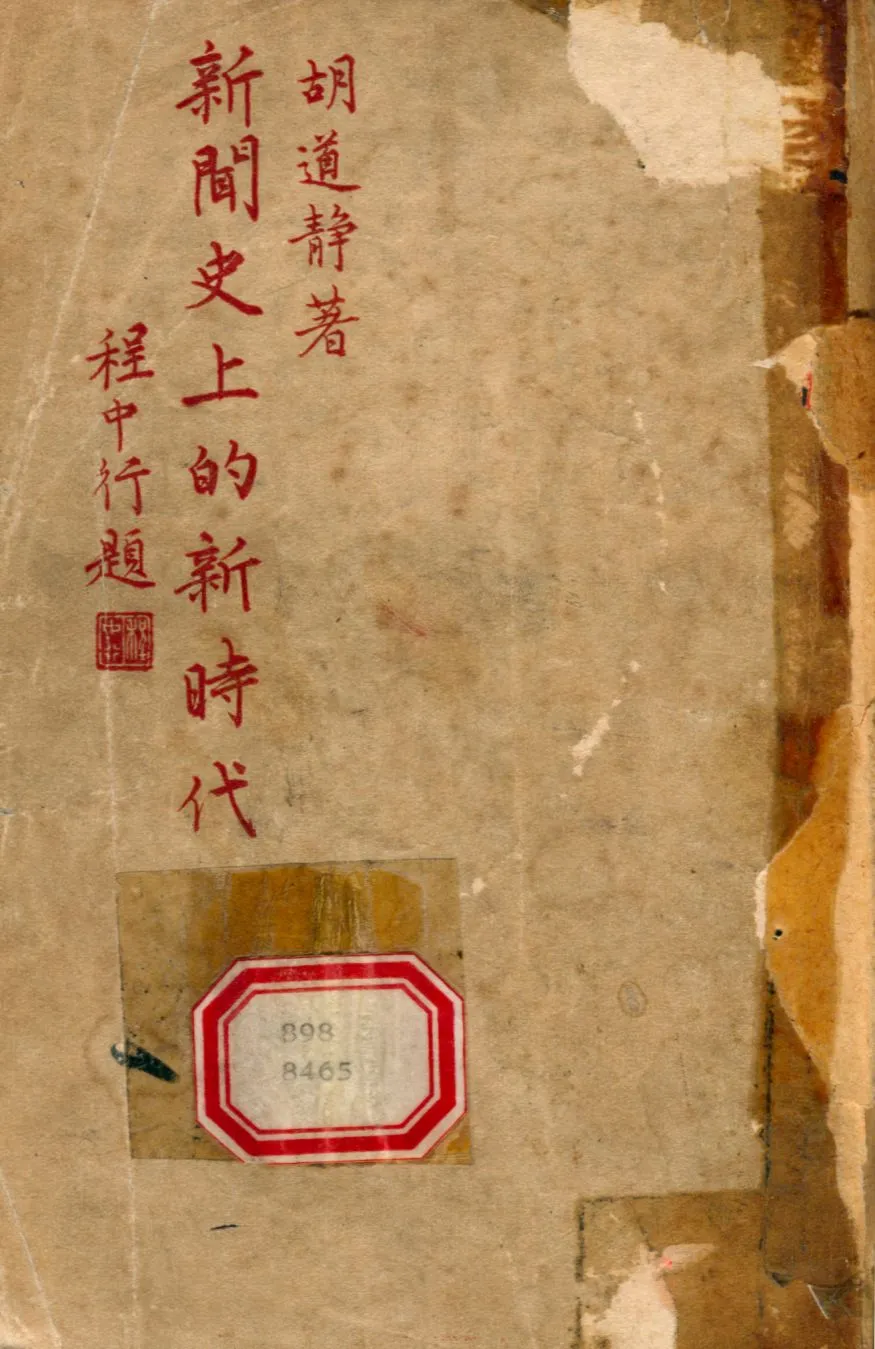 胡道静著
新聞史上的新時代
程中行題
898
8465